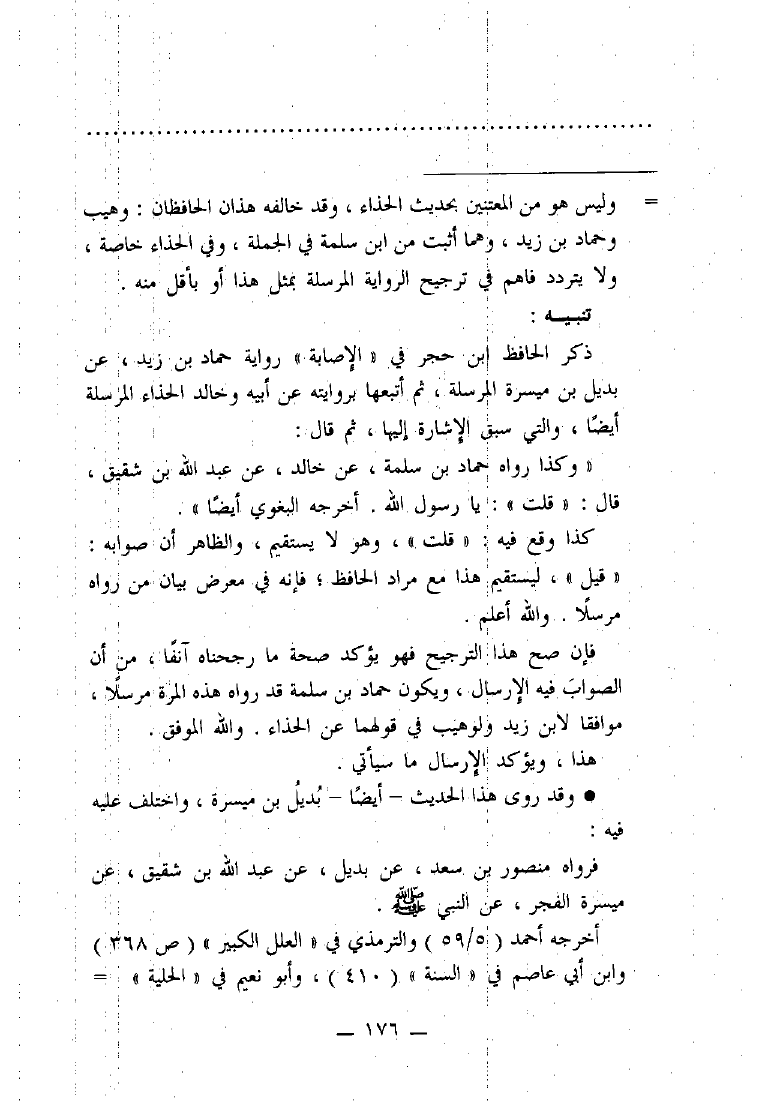 = وليس هو من المعتنين بحديث الحذاء ، وقد خالفه هذان الحافظان : وهيب
وحماد بن زيد ، وهما أثبت من ابن سلمة في الجملة ، وفي الحذاء خاصة ،
ولا يتردد فاهم في ترجيح الرواية المرسلة بمثل هذا أو بأقل منه .
تنبيــه :
ذكر الحافظ ابن حجر في « الإصابة » رواية حماد بن زيد ، عن
بديل بن ميسرة المرسلة ، ثم أتبعها بروايته عن أبيه وخالد الحذاء المرسلة
أيضًا ، والتي سبق الإشارة إليها ، ثم قال :
« وكذا رواه حماد بن سلمة ، عن خالد ، عن عبد الله بن شقيق ،
قال : « قلت » : يا رسول الله . أخرجه البغوي أيضًا » .
كذا وقع فيه : « قلت » ، وهو لا يستقيم ، والظاهر أن صوابه :
« قيل » ، ليستقيم هذا مع مراد الحافظ ؛ فإنه في معرض بيان من رواه
مرسلًا . والله أعلم .
فإن صح هذا الترجيح فهو يؤكد صحة ما رجحناه آنفًا ، من أن
الصوابَ فيه الإرسال ، ويكون حماد بن سلمة قد رواه هذه المرة مرسلًا ،
موافقا لابن زيد ولوهيب في قولهما عن الحذاء . والله الموفق .
هذا ، ويؤكد الإرسال ما سيأتي .
● وقد روى هذا الحديث – أيضًا – بُديلُ بن ميسرة ، واختلف عليه
فيه :
فرواه منصور بن سعد ، عن بديل ، عن عبد الله بن شقيق ، عن
ميسرة الفجر ، عن النبي ﷺ .
أخرجه أحمد ( ٥٩/٥ ) والترمذي في « العلل الكبير » ( ص ٣٦٨ )
وابن أبي عاصم في « السنة » ( ٤١٠ ) ، وأبو نعيم في « الحلية » =
— ١٧٦ —